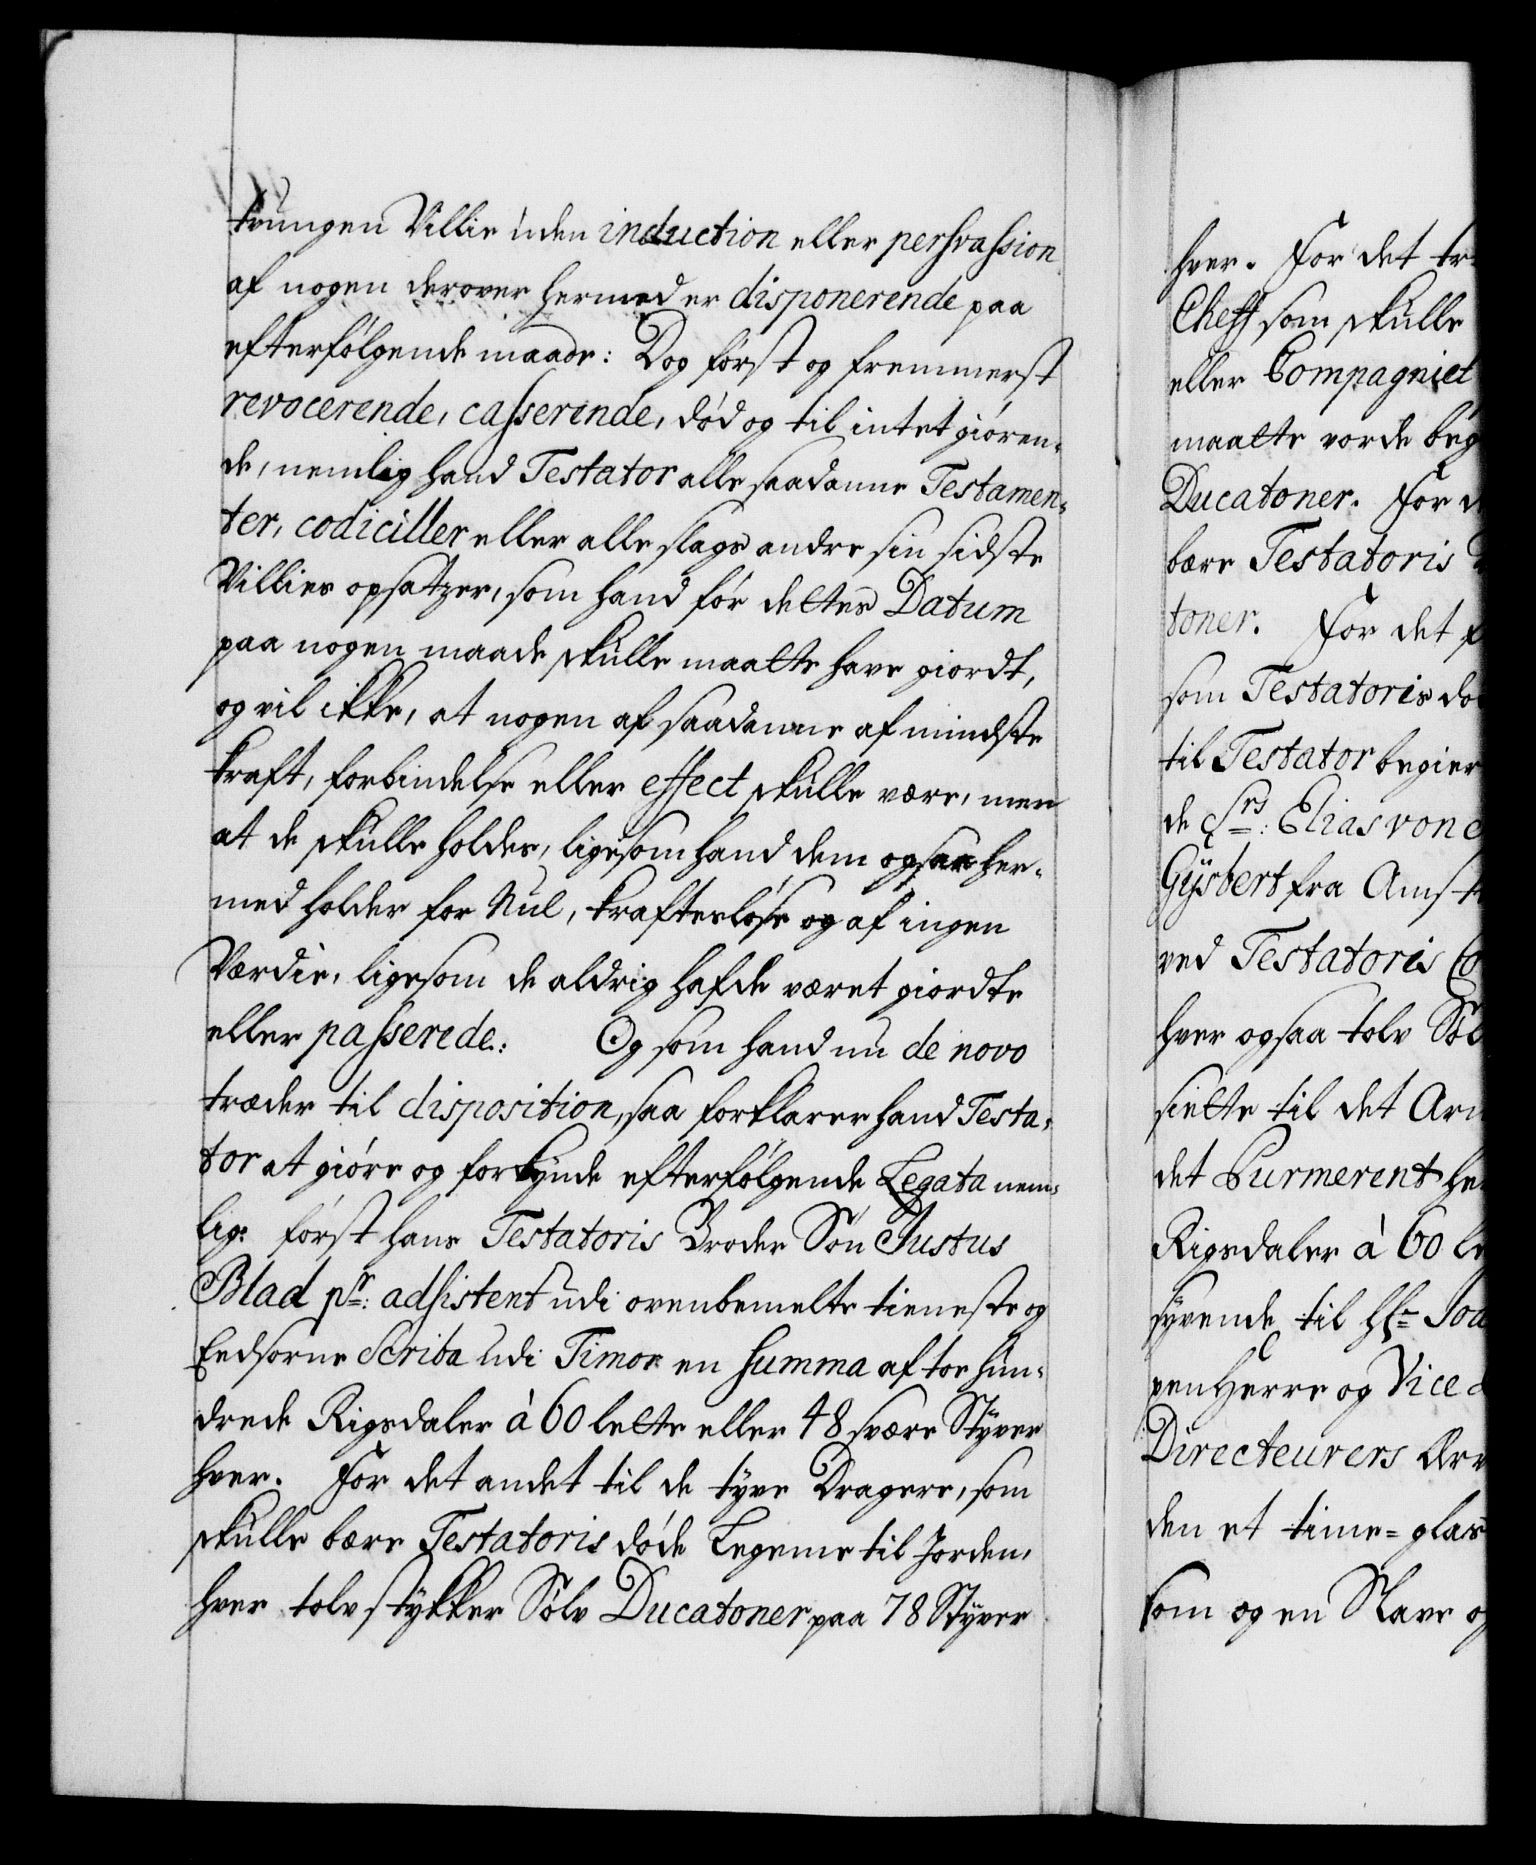 trungen Villie uden induction eller persvassion
af nogen derover hermed er disponerende paa
efterfølgende maade: Dog først og fremmerst
revocerende, casserende, død og til intet giören-
de, nemlig hand Testator alle saadanne Testamen-
ter, codiciller eller alle slags andre sin sidste
Villies opsatzer, som hand før dettes Datum
paa nogen maade skulle maatte have giordt,
og vil ikke, at nogen af saadanne af mindste
kraft, forbindelse eller effect skulle være, men
at de skulle holdes, ligesom hand dem ogsaa her-
med holder for Nul, krafteslöse og af ingen
Værdie, ligesom de aldrig hafde været giordte
eller passerede: Og som hand nu de novo
træder til disposition, saa forklarer hand Testa-
tor at giöre og forkynde efterfølgende Legata nem-
lig: først hans Testatoris Broder Søn Justus
Blad pr: adsistent udi ovenbemelte tieneste og
Eedsorne Scriba udi Timor en summa af toe hun-
drede Rigsdaler à 60 lette eller 48 svære Styver
hver. For det andet til de tyve Dragere, som
skulle bære Testatoris døde Legeme til Jorden,
hver tolv stykker Sølv Ducatoner paa 78 Styver
hver. For det tr
Cheff som skulle
eller Compagniet
maatte vorde beg
Ducatoner. For d
bære Testatoris
toner. For det f
som Testatoris dø
til Testator begier
de Srs: Elias von
Gijsbert fra Amst
ved Testatoris Co
hver ogsaa tolv Søl
siette til det Ar
det Purmerent he
Rigsdaler à 60 le
syvende til Hr Joa
pen Herre og Vice
Directeurers Ær
den et time-glas
som og en Slave o